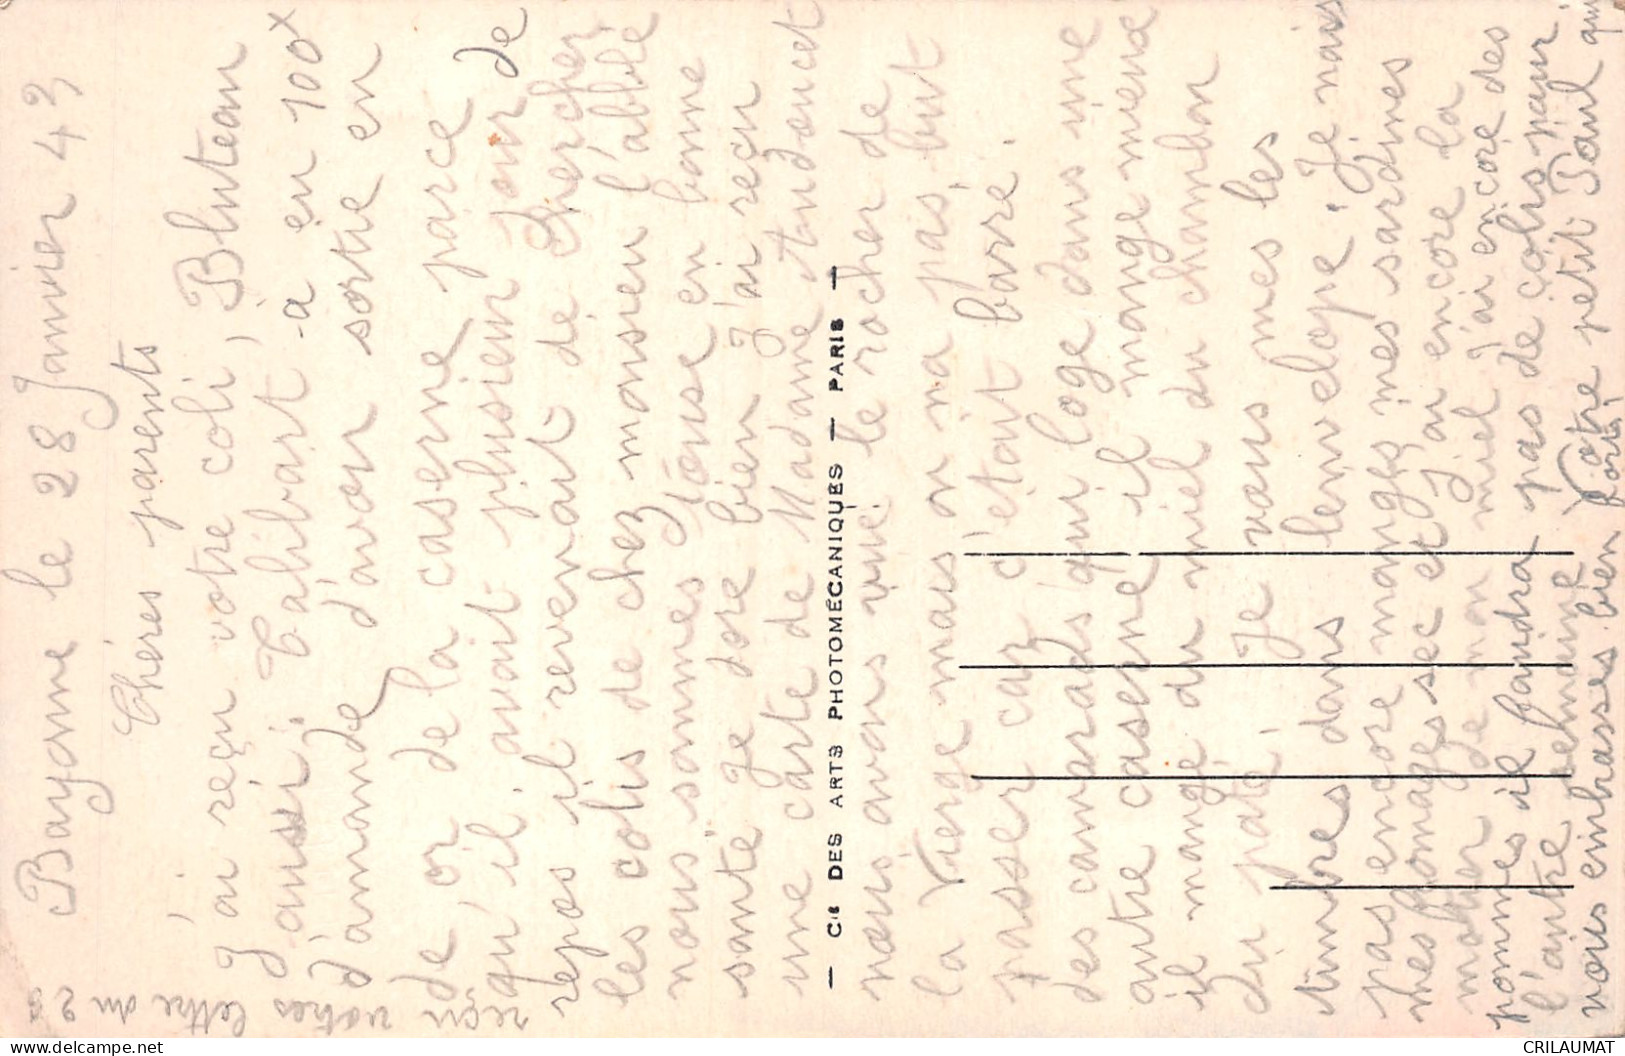 Bayonne le 28 Janvier 43
Chéres parents
J'ai reçu votre coli, Bluteau
aussi, Talibart, a en 100x
d'amande d'avoir sortie en
de or de la caserne parce
qu'il avait plusieur jour de
repos il revenait de chercher
les colis de chez monsieu l'abbé
nous sommes tous en bonne
santé Je dose bien J'ai reçu
une carte de Madame Audoucet
nous avons vue le rocher de
la Vierge mais on na pas but
passer car c'était barré.
des camarads qui loge dans une
autre caserne il mange meme
il mange du miel du chambon
du paté. Je vous mes les
timbres dans lenveloppe. Je nais
pas encore mangés mes sardines
mes fromages sec et J'ai encore la
moitier de mon miel J'ai encore des
pommes il faudra pas de colis pour
l'autre semaine Votre petit Paul qui
vous einbrasses bien fort.
reçu votres lettre du 23
— Cie DES ARTS PHOTOMÉCANIQUES — PARIS —
CRILAUMAT
www.delcampe.net